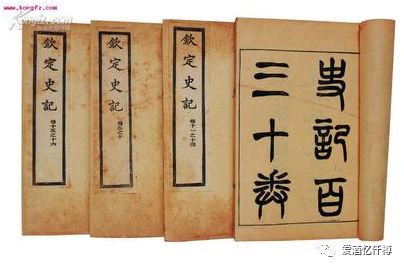 www.kongfz.com
欽定史記
卷十五之十六
欽定史記
欽定史記
卷十一之十四
史記百
三十卷
爱酒忆仟樽